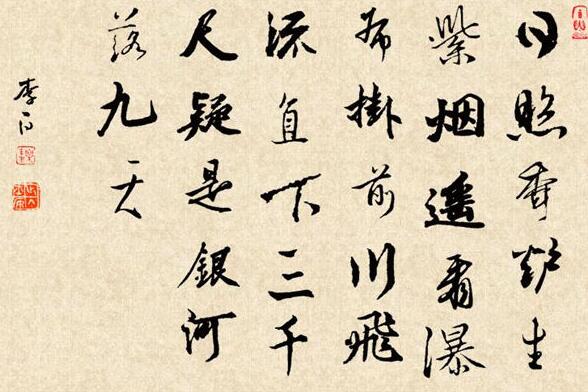 日照香炉生
紫烟遥看瀑
布掛前川飛
流直下三千
尺疑是銀河
落九天
李白